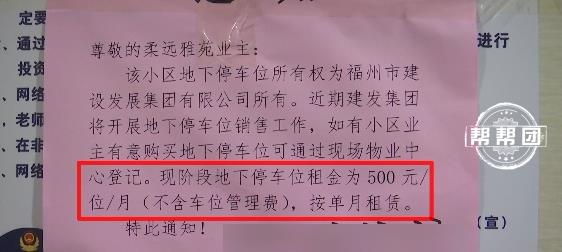 定要
进行
、通过
投资
、网络
、老师
、在非
、网络
尊敬的柔远雅苑业主：
该小区地下停车位所有权为福州市建
设发展集团有限公司所有。近期建发集团
将开展地下停车位销售工作，如有小区业
主有意购买地下停车位可通过现场物业中
心登记。现阶段地下停车位租金为 500 元/
位/月（不含车位管理费），按单月租赁。
特此通知！
（宣）
帮帮团